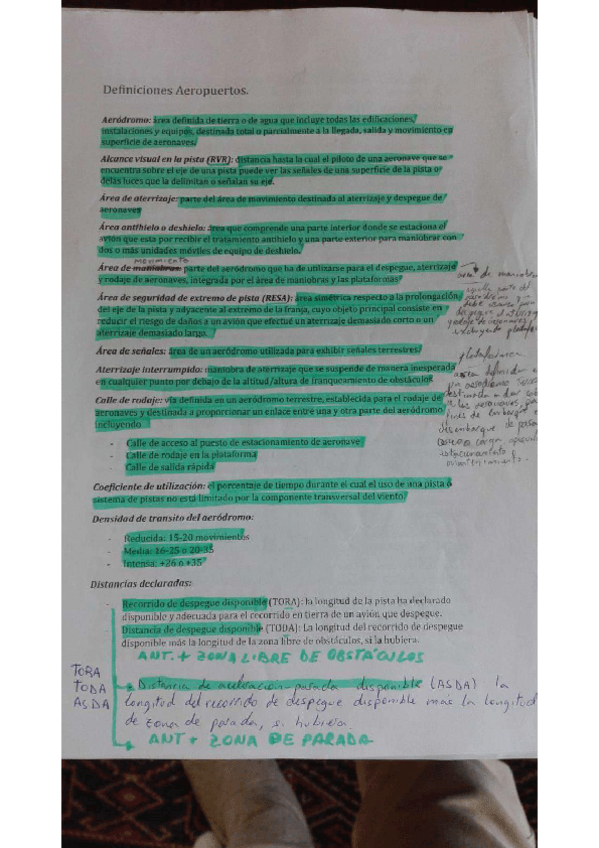 Definiciones Aeropuertos.
Aeródromo: área definida de tierra o de agua que incluye todas las edificaciones,
instalaciones y equipos, destinada total o parcialmente a la llegada, salida y movimiento en
superficie de aeronaves.
Alcance visual en la pista (RVR): distancia hasta la cual el piloto de una aeronave que se
encuentra sobre el eje de una pista puede ver las señales de una superficie de la pista o
de las luces que la delimitan o señalan su eje.
Área de aterrizaje: parte del área de movimiento destinada al aterrizaje y despegue de
aeronaves
Área antihielo o deshielo: área que comprende una parte interior donde se estaciona el
avión que esta por recibir el tratamiento antihielo y una parte exterior para maniobrar con
dos o más unidades móviles de equipo de deshielo.
MOVIMIENTO
Área de maniobras: parte del aeródromo que ha de utilizarse para el despegue, aterrizaje
y rodaje de aeronaves, integrada por el área de maniobras y las plataformas
Área de seguridad de extremo de pista (RESA): área simétrica respecto a la prolongación
del eje de la pista y adyacente al extremo de la franja, cuyo objeto principal consiste en
reducir el riesgo de daños a un avión que efectué un aterrizaje demasiado corto o un
aterrizaje demasiado largo.
Área de señales: área de un aeródromo utilizada para exhibir señales terrestres
Aterrizaje interrumpido: maniobra de aterrizaje que se suspende de manera inesperada
en cualquier punto por debajo de la altitud/altura de franqueamiento de obstáculos
Calle de rodaje: vía definida en un aeródromo terrestre, establecida para el rodaje de
aeronaves y destinada a proporcionar un enlace entre una y otra parte del aeródromo
incluyendo
- Calle de acceso al puesto de estacionamiento de aeronave
- Calle de rodaje en la plataforma
- Calle de salida rápida
de maniobras
plataforma
área definida
un aeródromo
destinada a dar
a las aeronaves, para
fines de embarque
desembarque de
carga
estacionamiento
Coeficiente de utilización: el porcentaje de tiempo durante el cual el uso de una pista o
sistema de pistas no está limitado por la componente transversal del viento
Densidad de transito del aeródromo:
- Reducida: 15-20 movimientos
- Media: 16-25 o 20-35
- Intensa: +26 o +35
Distancias declaradas:
- Recorrido de despegue disponible (TORA): la longitud de la pista ha declarado
disponible y adecuada para el recorrido en tierra de un avión que despegue.
Distancia de despegue disponible (TODA): La longitud del recorrido de despegue
disponible más la longitud de la zona libre de obstáculos, si la hubiera.
ANT. + ZONA LIBRE DE OBSTÁCULOS
TORA
TODA
ASDA
Distancia de aceleración-parada disponible (ASDA) la
longitud del recorrido de despegue disponible más la longitud
de zona de parada, si hubiera
ANT + ZONA DE PARADA